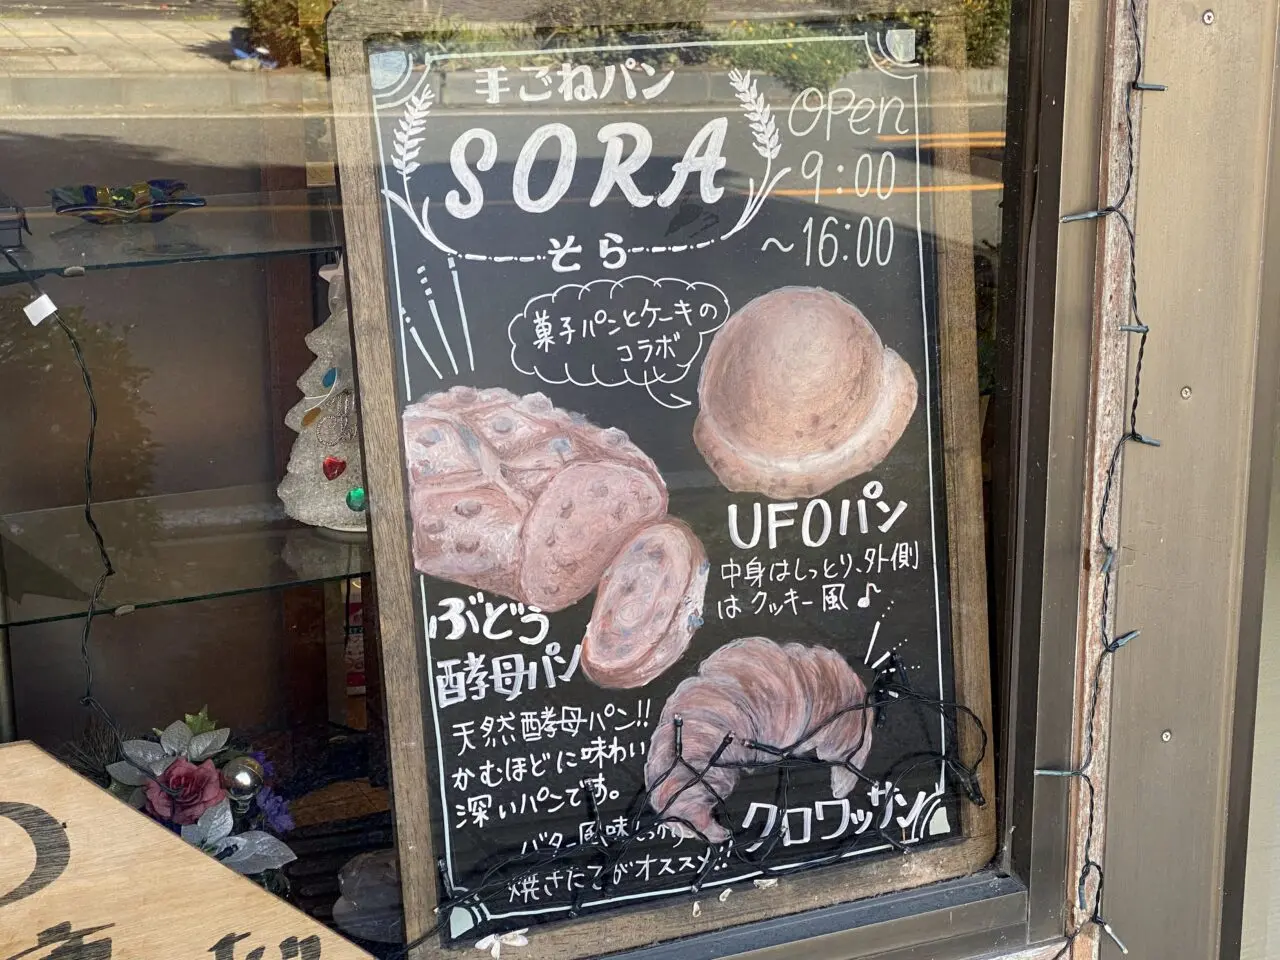 手ごねパン
SORA
そら
Open
9:00
～16:00
菓子パンとケーキの
コラボ
UFOパン
中身はしっとり、外側
は クッキー風♪
ぶどう
酵母パン
天然酵母パン!!
かむほどに味わい
深いパンです。
クロワッサン
バター風味しっかり
焼きたてがオススメ!!